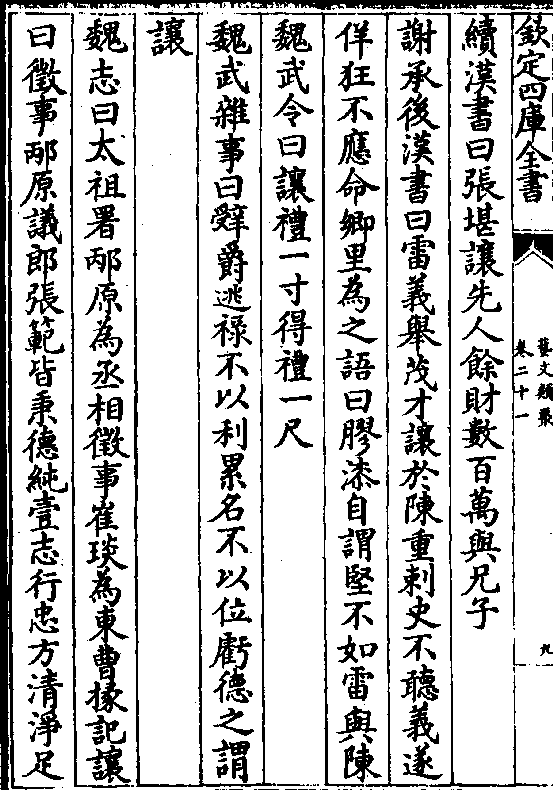 欽定四庫全書
藝文類聚
卷二十一
九
續漢書曰張堪讓先人餘財數百萬與兄子
謝承後漢書曰雷義舉茂才讓於陳重刺史不聽義遂
佯狂不應命鄉里為之語曰膠漆自謂堅不如雷與陳
魏武令曰讓禮一寸得禮一尺
魏武雜事曰辤爵逃祿不以利累名不以位虧德之謂
讓
魏志曰太祖署邴原為丞相徵事崔琰為東曹掾記讓
曰徵事邴原議郎張範皆秉德純壹志行忠方清淨足